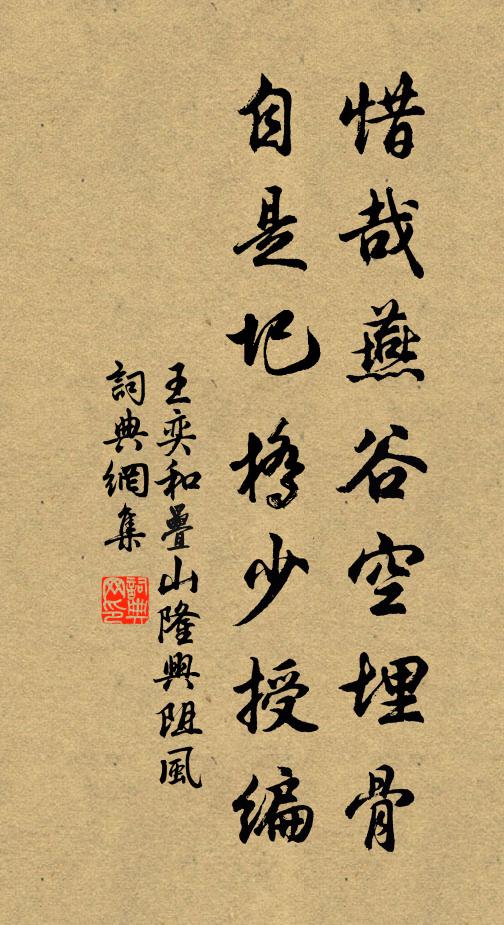 惜哉燕谷空埋骨
自是圯橋少授編
王奕和疊山隆興阻風
詞典網集
詞典网印